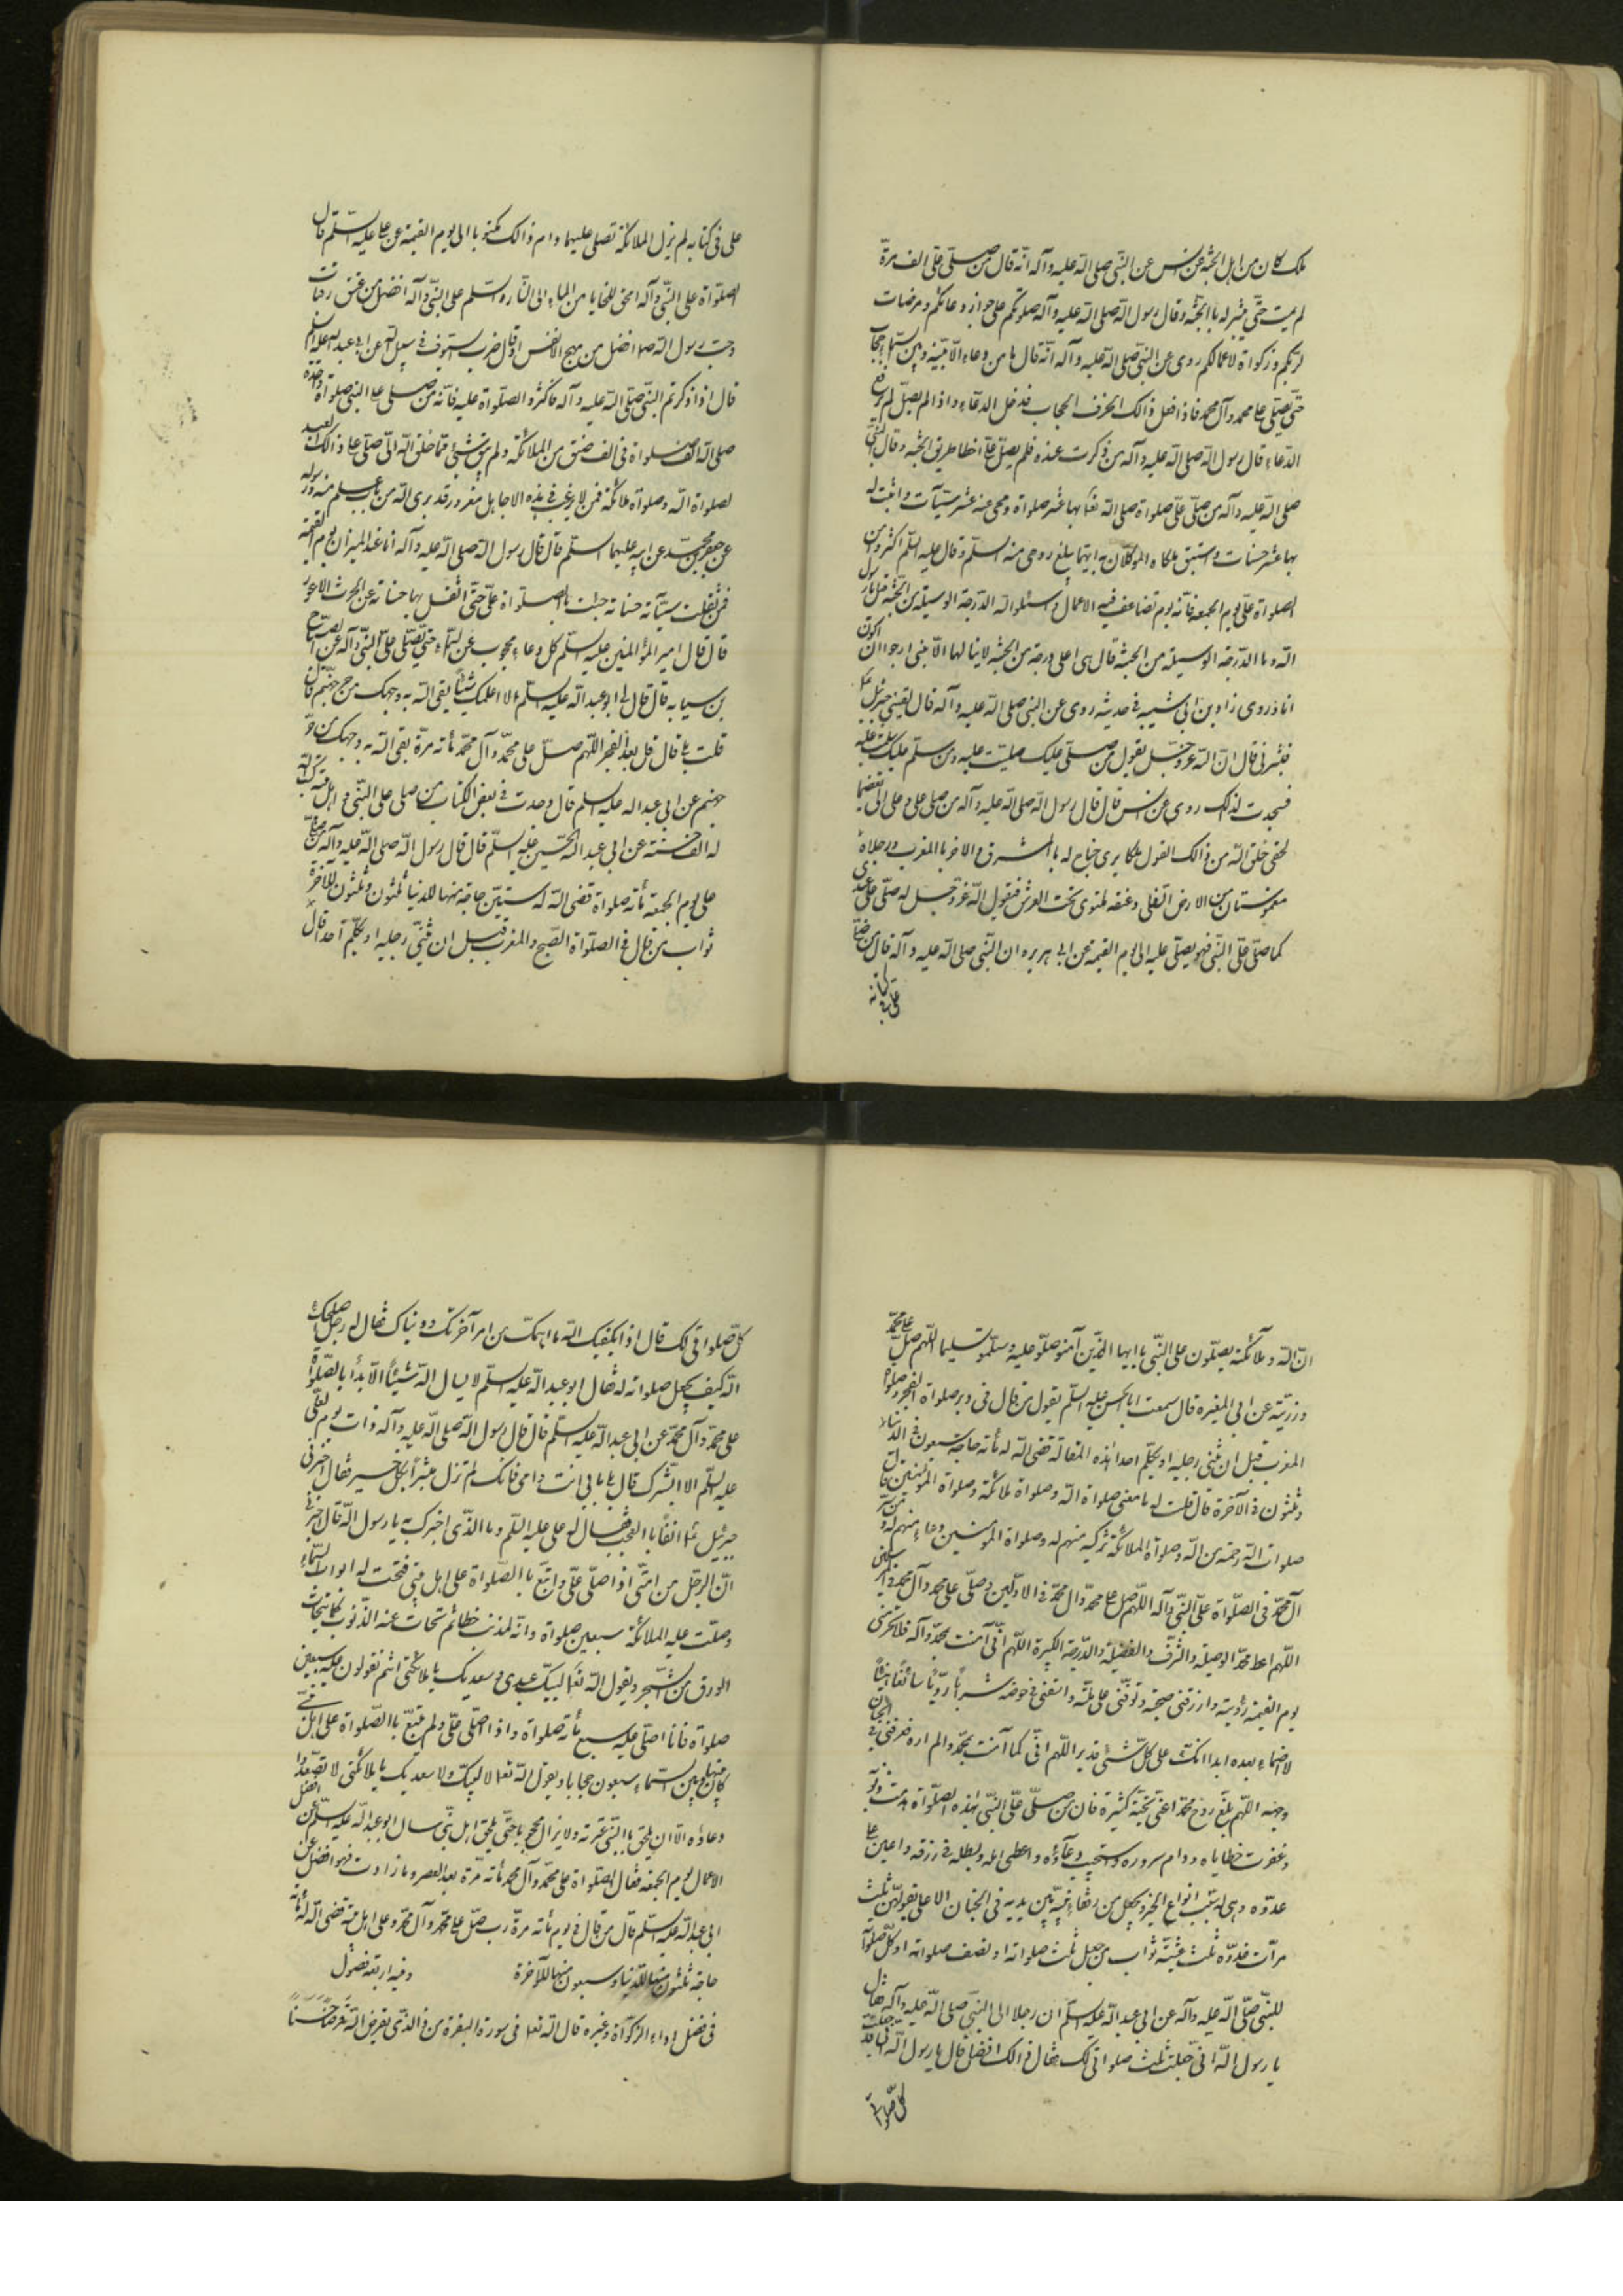 ملك كان من اهل الجنة عن انس عن النبى صلى الله عليه وآله انه قال من صلى على الف مرة
لم يمت حتى يبشر له باالجنة وقال رسول الله صلى الله عليه وآله صلوتكم على جواز دعائكم ومرضات
لربكم وزكواة لاعمالكم روى عن النبى صلى الله عليه وآله انه قال ما من دعاء الا بينه وبين السماء حجاب
حتى يصلى على محمد وآل محمد فاذا فعل ذالك انخرق الحجاب فدخل الدعاء واذا لم يصل لم يرفع
الدعاء قال رسول الله صلى الله عليه وآله من ذكرت عنده فلم يصل على اخطا طريق الجنة وقال النبى
صلى الله عليه وآله من صلى على صلواة صلى الله تعا بها عشر صلواة ومحى عنه عشر سيئات واثبت له
بها عشر حسنات واستبق ملكاه الموكلان به ايهما يبلغ روحى منه السلم وقال عليه السلم اكثروا من
الصلواة على يوم الجمعة فانه يوم تضاعف فيه الاعمال واسئلوا الله الدرجة الوسيلة من الجنة قيل يا رسول
الله وما الدرجة الوسيلة من الجنة قال هى اعلى درجة من الجنة لا ينالها الا نبى ارجوا ان اكون
انا وروى زاد بن ابى شيبة فى حديثه روى عن النبى صلى الله عليه وآله قال لقينى جبرئيل ع
فبشرنى قال ان الله عز وجل يقول من صلى عليك صليت عليه ومن سلم عليك سلمت عليه
فسجدت لذلك روى عن انس قال قال رسول الله صلى الله عليه وآله من صلى على وعلى آلى تعظيما
لحقى خلق الله من ذالك القول ملكا يرى جناح له باالمشرق والاخر باالمغرب ورجلاه
مغموستان من الارض السفلى وعنقه ملتوى تحت العرش فيقول الله عز وجل له صلى على عبدى
كما صلى على النبى فهو يصلى عليه الى يوم القيمة عن ابى هريره ان النبى صلى الله عليه وآله قال من صلى
على فى كتابه
على فى كتابه لم يزل الملائكة تصلى عليهما دام ذالك مكتوبا الى يوم القيمة عن على عليه السلم قال
الصلواة على النبى وآله امحق للخطايا من الماء الى النار والسلم على النبى وآله افضل من عتق رقبات
وحب رسول الله صلعم افضل من مهج الانفس او قال ضرب السيوف فى سبيل الله عن ابى عبد الله عليه السلم
قال اذا ذكرتم النبى صلى الله عليه وآله فاكثروا الصلواة عليه فانه من صلى على النبى صلواة واحدة
صلى الله الف صلواة فى الف صنف من الملائكة ولم يبق شئ مما خلق الله الا صلى على ذالك العبد
لصلواة الله وصلواة ملائكة فمن لا يرغب فى هذه الا جاهل مغرور قد برى الله من باب يسلم منه ورسوله
عن جعفر بن محمد عن ابيه عليهما السلم قال قال رسول الله صلى الله عليه وآله انا عند الميزان يوم القيمة
فمن ثقلت سيئاته حسناته جئت باالصلواة على حتى اثقل بها حسناته عن الحرث الاعور
قال قال امير المؤمنين عليه السلم كل دعاء محجوب عن السماء حتى يصلى على النبى وآله عن الصباح
بن سيابه قال قال لى ابو عبد الله عليه السلم الا اعلمك شيئا يقى الله به وجهك من حر جهنم قال
قلت بلى قال قل بعد الفجر اللهم صل على محمد وآل محمد مأته مرة يقى الله به وجهك من حر
جهنم عن ابى عبد الله عليه السلم قال وجدت فى بعض الكتاب من صلى على النبى واهل بيته كتب الله
له الف حسنة عن ابى عبد الله الحسين عليه السلم قال قال رسول الله صلى الله عليه وآله من صلى
على يوم الجمعة مأته صلواة قضى الله له ستين حاجة منها للدنيا ثلثون وثلثون للآخرة
ثواب من قال فى الصلواة الصبح والمغرب قبل ان يثنى رجليه او يكلم احدا قال
ان الله وملآئكته يصلون على النبى يا ايها الذين آمنو صلو عليه وسلمو تسليما اللهم صل على محمد
وذريته عن ابى المغيره قال سمعت ابا الحسن عليه السلم يقول من قال فى دبر صلواة الفجر وصلواة
المغرب قبل ان يثنى رجليه او يكلم احدا هذه المقالة قضى الله له مأته حاجة سبعون فى الدنيا
وثلثون فى الآخرة قال قلت له ما معنى صلواة الله وصلواة ملائكة وصلواة المؤمنين قال
صلوات الله رحمة من الله وصلواة الملائكة تزكيه منهم له وصلواة المومنين دعاء منهم له ومن سر
آل محمد فى الصلواة على النبى وآله اللهم صل على محمد وال محمد فى الاولين وصلى على محمد وآل محمد فى الاخرين
اللهم اعط محمد الوصيلة والشرف والفضيلة والدرجة الكبيرة اللهم انى آمنت بمحمد وآله فلا تحرمنى
يوم القيمة رؤيته وارزقنى صحبته وتوفنى على ملته واسقنى فى حوضه شرابا رويا سائغا هنيئا
لا ضماء بعده ابدا انك على كل شئ قدير اللهم انى كما آمنت بمحمد ولم اره فعرفنى فى الجنان
وجهه اللهم بلغ روح محمد اعنى تحية كثيرة فان من صلى على النبى بهذه الصلواة هدمت ذنوبه
وغفرت خطاياه ودام سروره واستجيب دعآؤه واعطى امله وبسط له فى رزقه واعين على
عدوه وهى له سبب انواع الخير ويجعل من رفقاء نبيه بين يديه فى الجنان الاعلى يقولهن ثلث
مرآت غدوه ثلث عشية ثواب من جعل ثلث صلواته او نصف صلواته او كل صلوآته
للنبى صلى الله عليه وآله عن ابى عبد الله عليه السلم ان رجلا الى النبى صلى الله عليه وآله فقال
يا رسول الله انى جعلت ثلث صلواتى لك فقال ذالك افضل قال يا رسول الله انى قد جعلت
كل صلواتى
كل صلواتى لك قال اذا يكفيك الله ما اهمك من امر آخرتك ودنياك فقال له رجل اصلحك
الله كيف يجعل صلواته له فقال ابو عبد الله عليه السلم لا يسال الله شيئا الا بدأ باالصلواة
على محمد وآل محمد عن ابى عبد الله عليه السلم قال قال رسول الله صلى الله عليه وآله ذات يوم لعلى
عليه السلم الا ابشرك قال بلى بابى انت وامى فانك لم تزل مبشرا بكل خير فقال اخبرنى
جبرئيل ع انفا باالعجب فقال له على عليه السلم وما الذى اخبرك به يا رسول الله قال اخبرنى
ان الرجل من امتى اذا صلى على واتبع باالصلواة على اهل بيتى فتحت له ابواب السماء
وصلت عليه الملائكة سبعين صلواة وانه لمذنب خطائم تحات عنه الذنوب كما يتحات
الورق من الشجر ويقول الله تعا لبيك عبدى وسعديك يا ملائكتى انتم تقولون عليه سبعين
صلواة فانا اصلى عليه سبع مأته صلواة واذا اصلى على ولم يتبع باالصلواة على اهل بيتى
كان بينها وبين السماء سبعون حجابا ويقول الله تعا لا لبيك ولا سعديك يا ملائكتى لا تصعدوا
دعاؤه الا ان يلحق باالنبى عترته ولا يزال محجوبا حتى يلحق اهل بيتى سال ابو عبد الله عليه السلم عن افضل
الاعمال يوم الجمعة فقال الصلواة على محمد وآل محمد مأته مرة بعد العصر وما زادت فهو افضل عن
ابى عبد الله عليه السلم قال من قال فى يوم مأته مرة رب صل على محمد وآل محمد وعلى اهل بيته قضى الله له مأته
حاجة ثلثون منها للدنيا وسبعون منها للآخرة وفيه اربعة فصول
فى فضل اداء الزكوآة وغيره قال الله تعا فى سورة البقرة من ذالذى يقرض الله قرضا حسنا